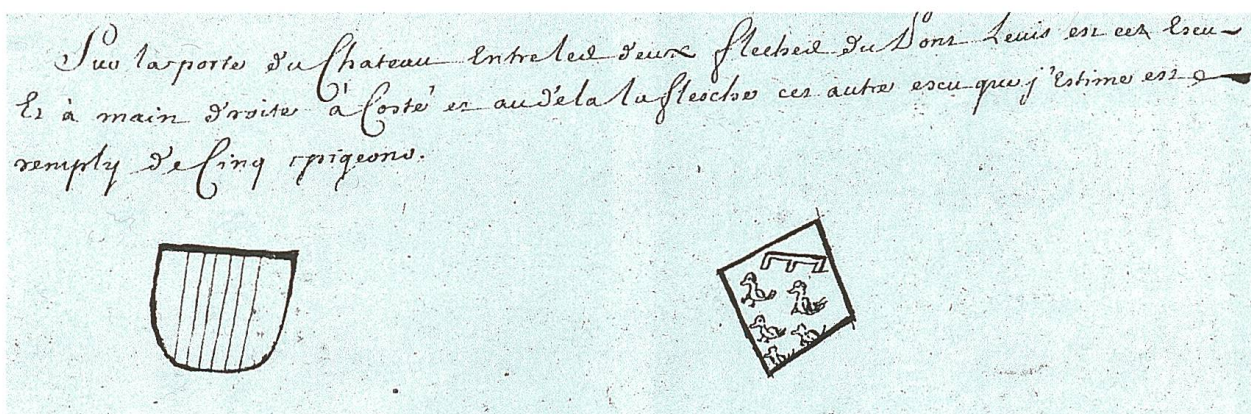 Sur la porte du Chateau Entre les deux fleches du Pont Levis est cet Escu
Et à main droite à Costé et au dela la flesche cet autre escu que j'Estime est
remply de Cinq pigeons.